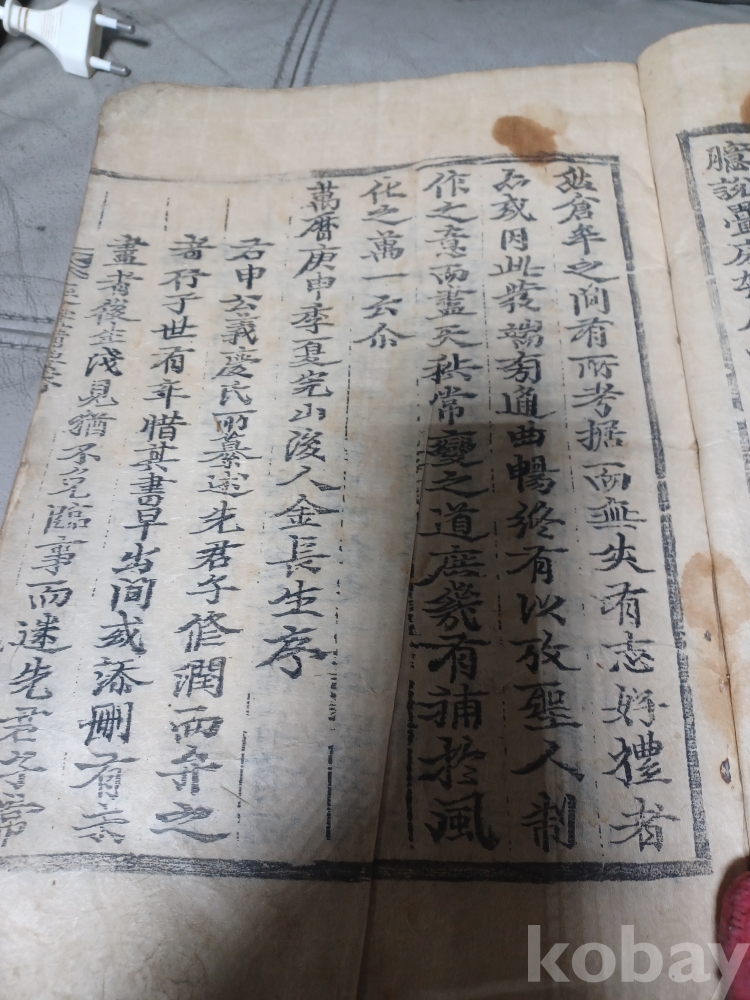 於倉卒之間有所考据而無失有志好禮者
若或因此發端旁通曲暢終有以攷聖人制
作之意而盡天秩常變之道庶幾有補於風
化之萬一云尒
萬曆庚申季夏完山後人金長生序
右申公義慶氏所纂述先君子修潤而弁之
者行于世有年惜其書早出間或添刪有未
盡者後生淺見猶不免臨事而迷先君子常
臆說
kobay